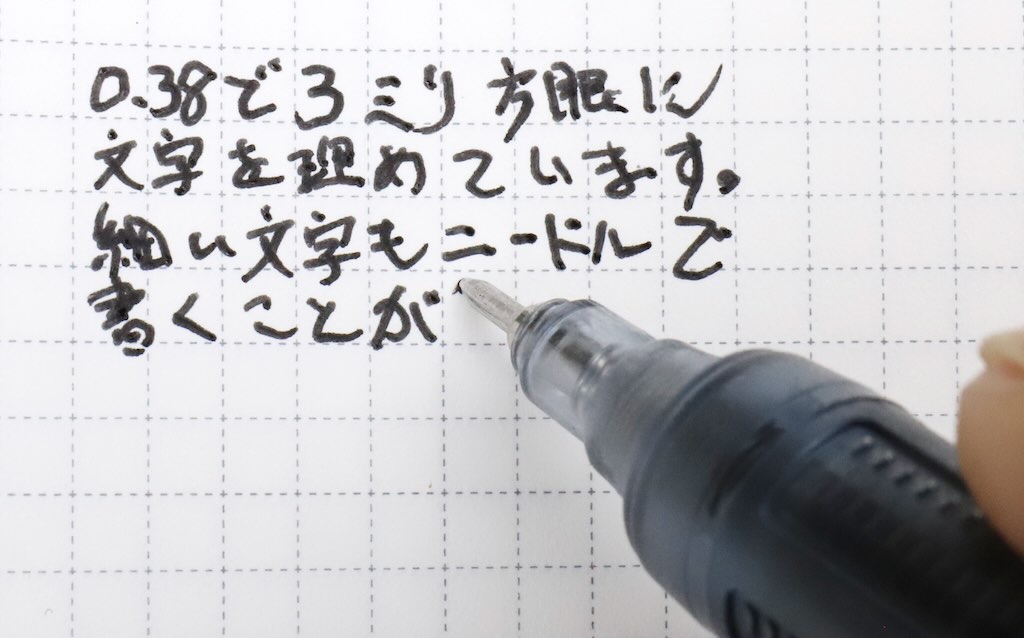 0.38で3ミリ方眼に
文字を埋めています。
細い文字もニードルで
書くことが